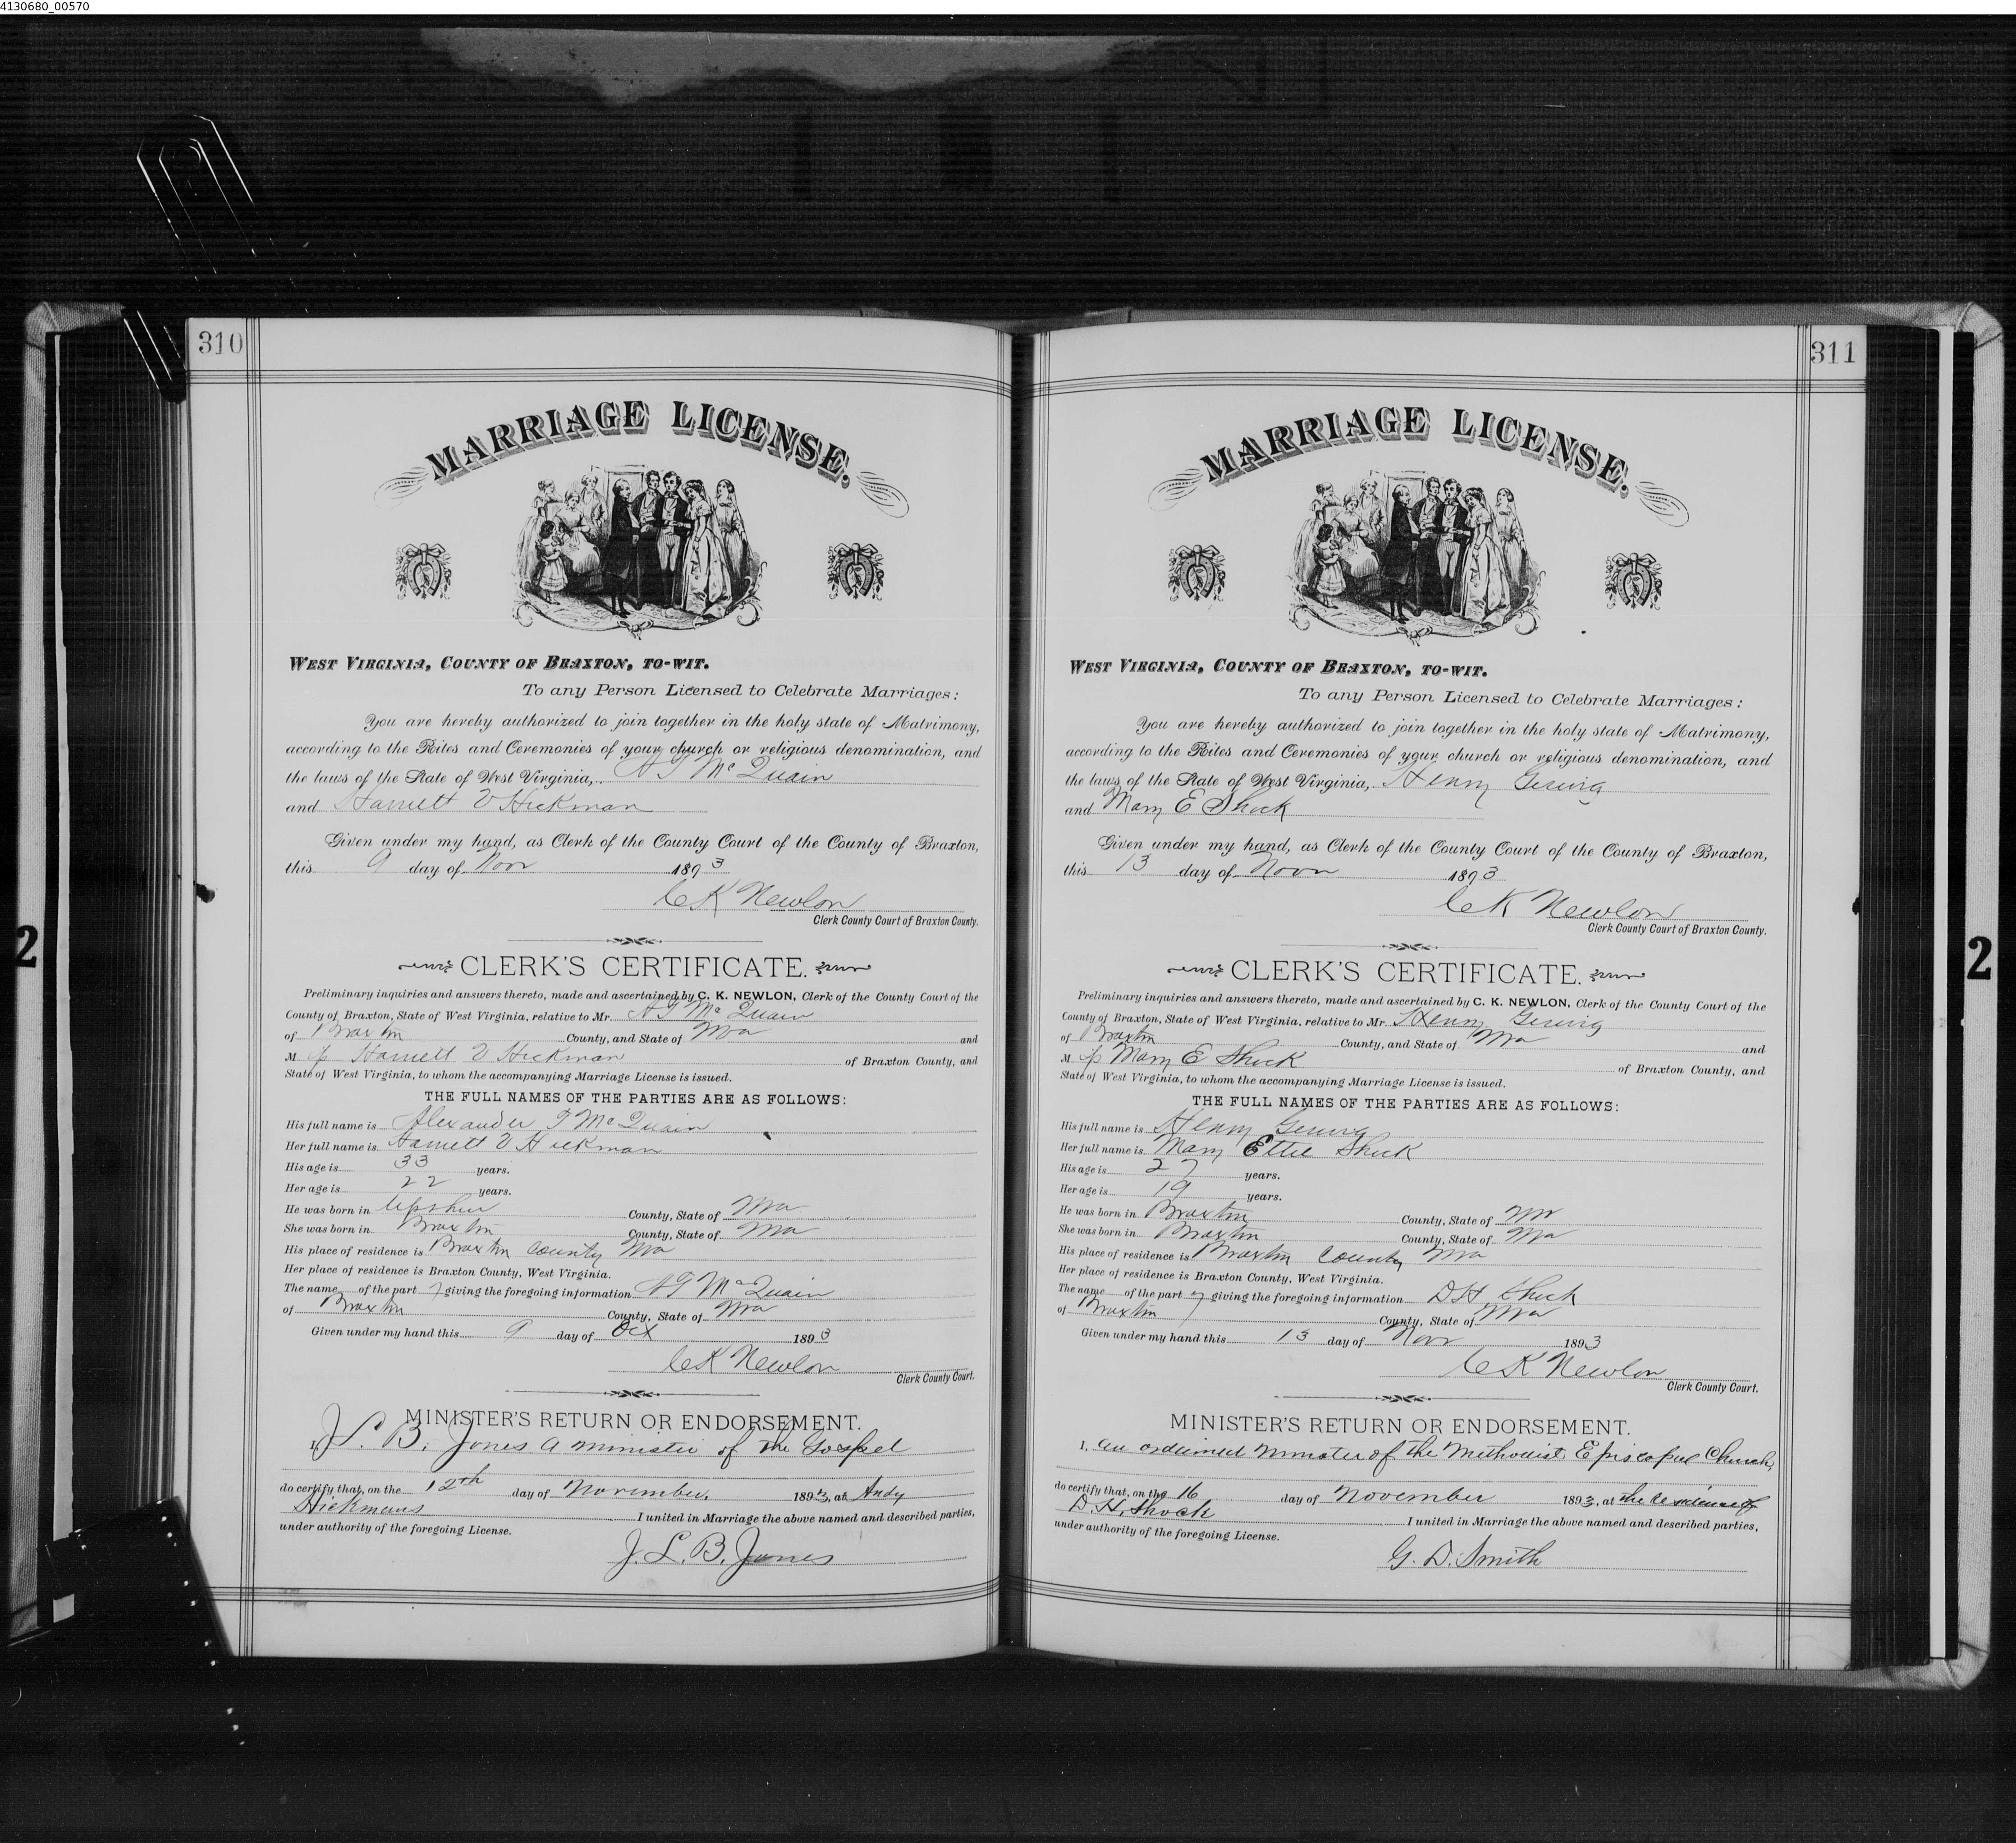 4130680_00570
310
MARRIAGE LICENSE.
WEST VIRGINIA, COUNTY OF BRAXTON, TO-WIT.
To any Person Licensed to Celebrate Marriages:
You are hereby authorized to join together in the holy state of Matrimony,
according to the Rites and Ceremonies of your church or religious denomination, and
the laws of the State of West Virginia, A T McQuain
and Harriett V Hickman
Given under my hand, as Clerk of the County Court of the County of Braxton,
this 9 day of Nov 1893
C K Newlon
Clerk County Court of Braxton County.
CLERK'S CERTIFICATE.
Preliminary inquiries and answers thereto, made and ascertained by C. K. NEWLON, Clerk of the County Court of the
County of Braxton, State of West Virginia, relative to Mr. A T McQuain
of Braxton County, and State of Wva and
M Harriett V Hickman of Braxton County, and
State of West Virginia, to whom the accompanying Marriage License is issued.
THE FULL NAMES OF THE PARTIES ARE AS FOLLOWS:
His full name is Alexander T McQuain
Her full name is Harriett V Hickman
His age is 33 years.
Her age is 22 years.
He was born in Upshur County, State of Wva
She was born in Braxton County, State of Wva
His place of residence is Braxton County Wva
Her place of residence is Braxton County, West Virginia.
The name of the part y giving the foregoing information A T McQuain
of Braxton County, State of Wva
Given under my hand this 9 day of Oct 1893
C K Newlon
Clerk County Court.
MINISTER'S RETURN OR ENDORSEMENT.
I, J. L. B. Jones a minister of the Gospel
do certify that, on the 12th day of November, 1893, at Andy
Hickmans I united in Marriage the above named and described parties,
under authority of the foregoing License.
J. L. B. Jones
311
MARRIAGE LICENSE.
WEST VIRGINIA, COUNTY OF BRAXTON, TO-WIT.
To any Person Licensed to Celebrate Marriages:
You are hereby authorized to join together in the holy state of Matrimony,
according to the Rites and Ceremonies of your church or religious denomination, and
the laws of the State of West Virginia, Henry Gerwig
and Mary E Shock
Given under my hand, as Clerk of the County Court of the County of Braxton,
this 13 day of Nov 1893
C K Newlon
Clerk County Court of Braxton County.
CLERK'S CERTIFICATE.
Preliminary inquiries and answers thereto, made and ascertained by C. K. NEWLON, Clerk of the County Court of the
County of Braxton, State of West Virginia, relative to Mr. Henry Gerwig
of Braxton County, and State of Wva and
M Mary E Shock of Braxton County, and
State of West Virginia, to whom the accompanying Marriage License is issued.
THE FULL NAMES OF THE PARTIES ARE AS FOLLOWS:
His full name is Henry Gerwig
Her full name is Mary Ettie Shock
His age is 27 years.
Her age is 19 years.
He was born in Braxton County, State of Wv
She was born in Braxton County, State of Wva
His place of residence is Braxton County Wva
Her place of residence is Braxton County, West Virginia.
The name of the part y giving the foregoing information D H Shock
of Braxton County, State of Wva
Given under my hand this 13 day of Nov 1893
C K Newlon
Clerk County Court.
MINISTER'S RETURN OR ENDORSEMENT.
I, an ordained Minister of the Methodist Episcopal Church,
do certify that, on the 16 day of November 1893, at the residence of
D. H. Shock I united in Marriage the above named and described parties,
under authority of the foregoing License.
G. D. Smith
2
2